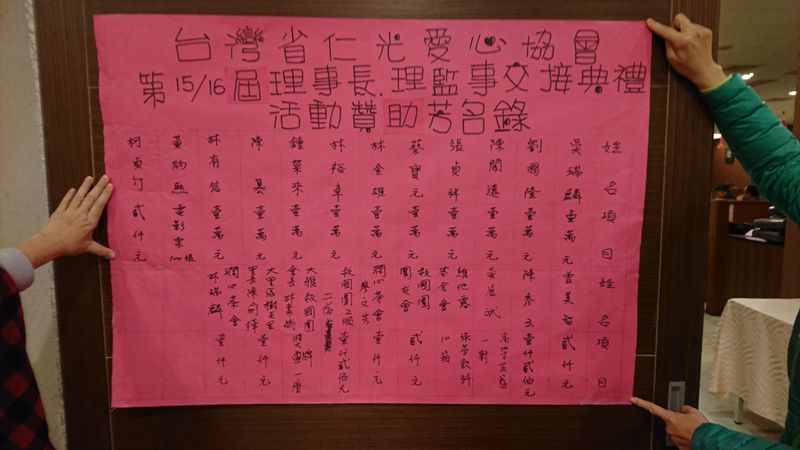 台灣省仁光愛心協會
第15/16屆理事長.理監事交接典禮
活動贊助芳名錄
姓名項目
吳瑞麟壹萬元
劉國隆壹萬元
陳開遠壹萬元
張貞祥壹萬元
蔡寶元壹萬元
林金雄壹萬元
林裕章壹萬元
鍾榮來壹萬元
陳 壹萬元
林有信壹萬元
黃炳熙電影票100張
柯貞竹貳仟元
姓名項目
曾美智貳仟元
陳秀 壹仟貳佰元
一對
維他露基金會 飲料10箱
救國團團友會 貳仟元
潤心茶會 廖文芳 壹仟元
救國團 壹仟貳佰元
大雅救國團會長林素 一座
大里區樹王里里長陳 壹仟元
潤心茶會林瑞麟 壹仟元